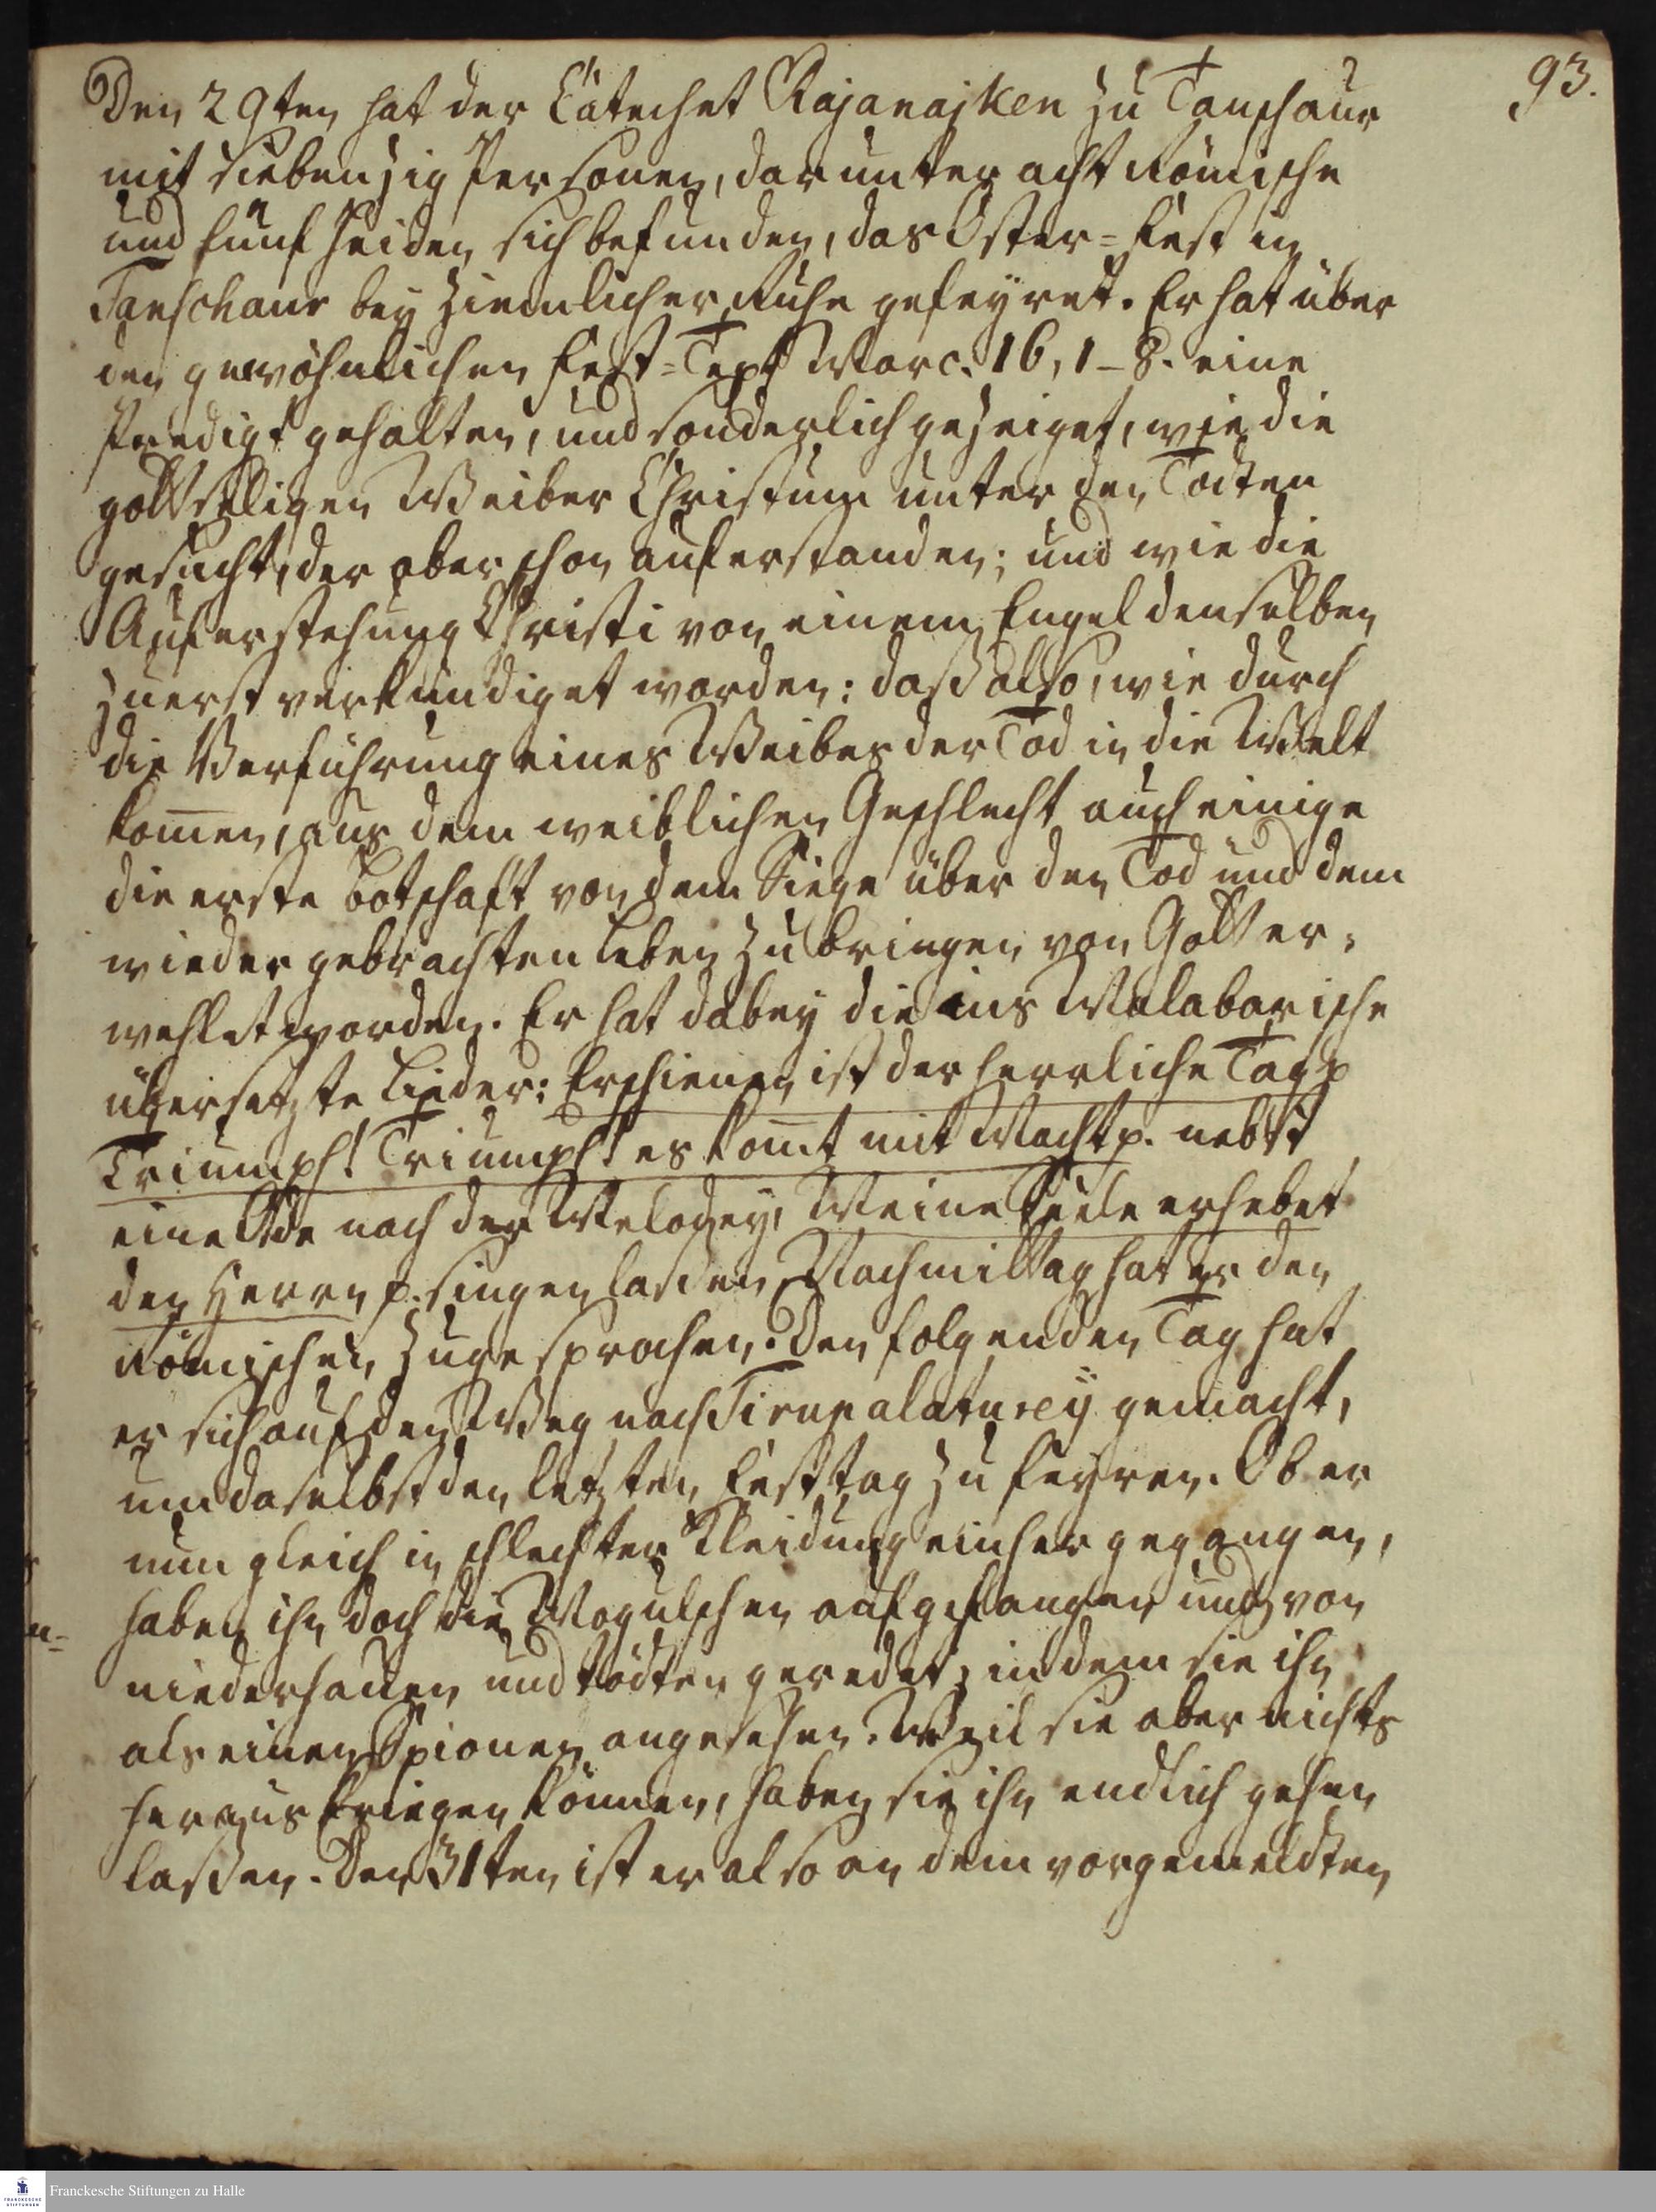 93.
Den 29ten hat der Catechet Rajanajken zu Tanschaur
mit siebenzig Personen, darunter acht Römische
und fünf Heiden sich befunden, das Oster-Fest in
Tanschaur bey ziemlicher Ruhe gefeyret. Er hat über
den gewöhnlichen Fest-Text Marc. 16, 1-8. eine
Predigt gehalten, und sonderlich gezeiget, wie die
gottseligen Weiber Christum unter den Todten
gesucht, der aber schon auferstanden; und wie die
Auferstehung Christi von einem Engel denselben
zuerst verkündiget worden: daß also, wie durch
die Verführung eines Weibes der Tod in die Welt
kom̅en, aus dem weiblichen Geschlecht auch einige
die erste Botschaft von dem Siege über den Tod und dem
wieder gebrachten Leben zu bringen von Gott er-
wehlet worden. Er hat dabey die ins Malabarische
übersetzte Lieder: Erschienen ist der herrliche Tag p
Triumph! Triumph! es kom̅t mit Macht p. nebst
eine Ode nach der Melodey, Meine Seele erhebet
den Herrn p. singen laßen, Nachmittag hat er den
Römischen zugesprochen. Den folgenden Tag hat
er sich auf den Weg nach Tirupalaturey gemacht,
um daselbst den letzten Festtag zu feyren. Ob er
nun gleich in schlechter Kleidung einher gegangen,
haben ihn doch die Mogulschen aufgefangen und von
niederhauen und tödten geredet, indem sie ihn
als einen Spionen angesehen. Weil sie aber nichts
heraus kriegen können, haben sie ihn endlich gehen
laßen. Den 31ten ist er also an dem vorgemeldten
n-
Franckesche Stiftungen zu Halle